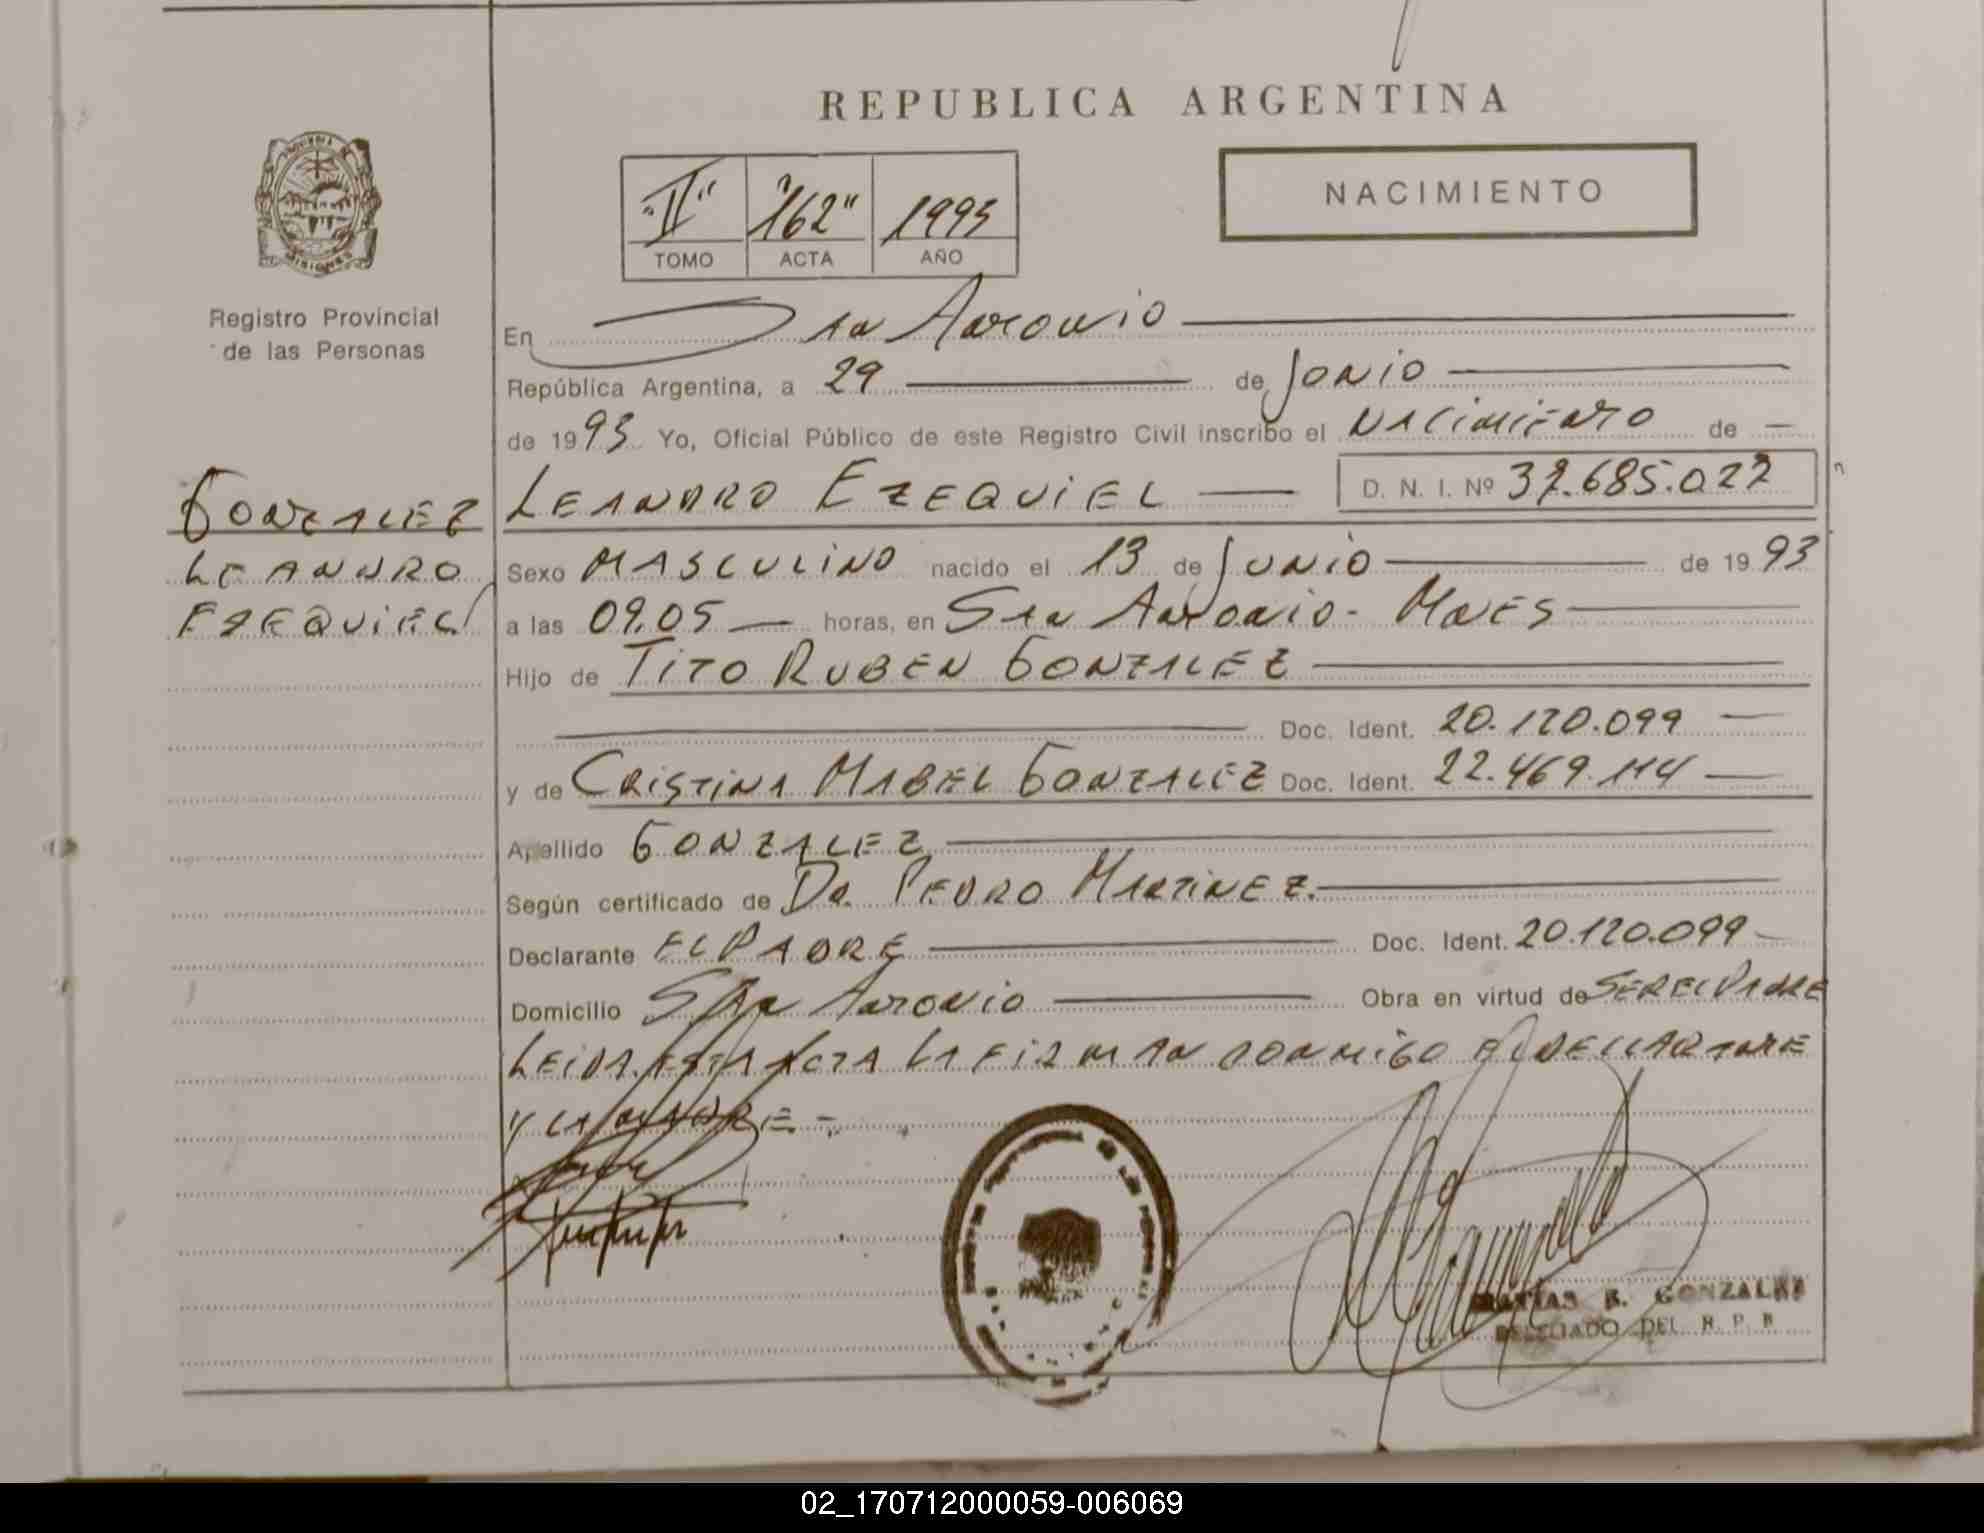 REPUBLICA ARGENTINA
"II" "162" 1993
TOMO ACTA AÑO
NACIMIENTO
MISIONES
Registro Provincial
de las Personas
GONZALEZ
LEANDRO
EZEQUIEL
En San Antonio
República Argentina, a 29 de Junio
de 1993 Yo, Oficial Público de este Registro Civil inscribo el NACIMIENTO de
LEANDRO EZEQUIEL D. N. I. Nº 37.685.022
Sexo MASCULINO nacido el 13 de JUNIO de 1993
a las 09.05 horas, en San Antonio - Mnes
Hijo de TITO RUBEN GONZALEZ
Doc. Ident. 20.120.099
y de CRISTINA MABEL GONZALEZ Doc. Ident. 22.469.114
Apellido GONZALEZ
Según certificado de Dr. PEDRO MARTINEZ.
Declarante EL PADRE Doc. Ident. 20.120.099
Domicilio San Antonio Obra en virtud de SER EL PADRE
LEIDA ESTA ACTA LA FIRMAN CONMIGO EL DECLARANTE
Y LA MADRE. -
MATIAS R. GONZALEZ
DELEGADO DEL R. P. P.
02_170712000059-006069